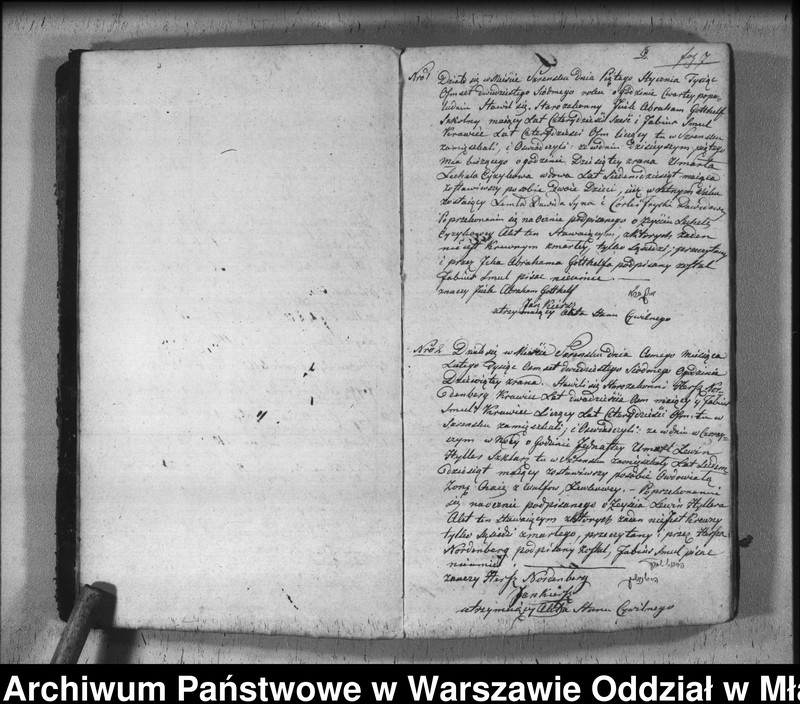 8. fol 7
Nro 1 Działo się w Mieście Szrensku dnia Piątego Stycznia Tysiąc
Ośmset dwudziestego Siódmego roku o godzinie Czwartey popo-
łudniu Stawił się Starozakonny Jcik Abraham Gotthelf
Szkolny maiący Lat Czterdzieści Sześć i Jabius Smul
Krawiec Lat Czterdzieści Ośm liczący tu w Szrensku
zamięszkali, i Oświadczyli: ze w dniu dzisieyszym piątym
Mca bieżącego o godzinie Dziesiątey zrana Umarła
wdowa Lat Siedmdziesiąt maiąca
zostawiwszy po sobie dwoie Dzieci,
Dawida Syna i Corkę
Po przekonaniu się naocznie podpisanego o zeyściu
Akt ten Stawaiącym, z których żaden
nie jest Krewnym zmarłey, tylko Sąsiedzi, przeczytany
i przez Jcka Abrahama Gotthelfa podpisany został
Jabius Smul pisać nieumie
znaczy Jcik Abraham Gotthelf
utrzymuiący Akta Stanu Cywilnego
Nro 2 Działo się w Mieście Szrensku dnia Osmego Miesiąca
Lutego Tysiąc Osmset dwudziestego Siódmego o godzinie
Dziewiątey zrana. Stawili się Starozakonni Hersz Nor-
denberg Krawiec Lat dwadzieścia Osm maiący y Jabius
Smul Krawiec Liczący Lat Czterdzieści Ośm tu w
Szrensku zamięszkali; i Oświadczyli: ze w dniu wczoray-
szym w Nocy o godzinie Jedynastey Umarł Lewin
Hyller Szklarz tu w Szrensku zamięszkały Lat
maiący zostawiwszy po sobie Owdowiałą
Żonę z Wulfow - Po przekonaniu
się naocznie podpisanego o Zeyściu Lewin Hyllera
Akt ten stawaiącym z których żaden nie jest Krewny
tylko Sąsiedzi zmarłego, przeczytany i przez Hersza
Nordenberg podpisany został, Jabius Smul pisać
nieumie.
znaczy Hersz Nordenberg
utrzymuiący Akta Stanu Cywilnego
Archiwum Państwowe w Warszawie Oddział w Mła